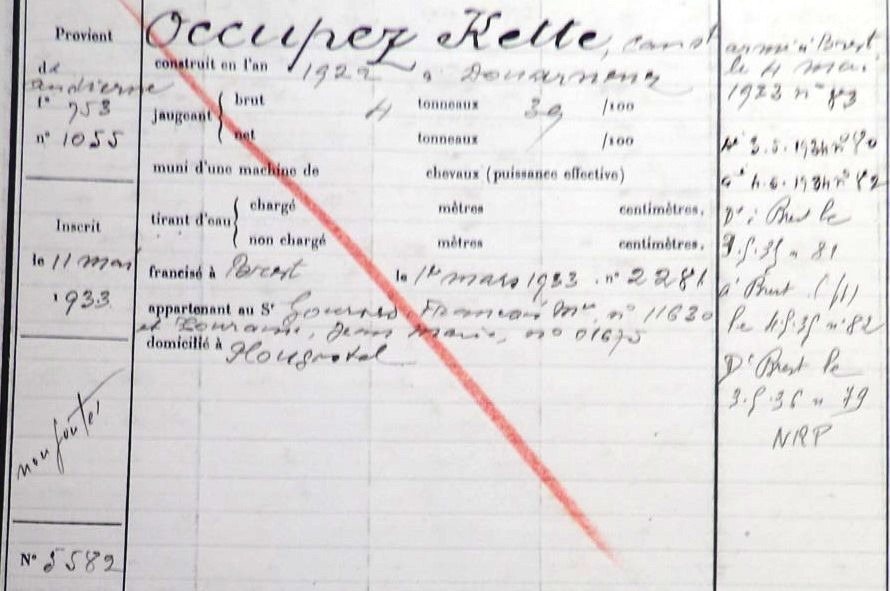 Provient
de
audierne
f° 753
n° 1055
Inscrit
le 11 mai
1933
non ponté
N° 5582
Occupez Kette, canot
construit en l'an 1922 à Douarnenez
jaugeant brut 4 tonneaux 39 /100
net tonneaux /100
muni d'une machine de chevaux (puissance effective)
tirant d'eau chargé mètres centimètres.
non chargé mètres centimètres.
francisé à Brest le 1er mars 1933 . n° 2281
appartenant au Sr François Mie n° 11630
et Jean Marie, no 01675
domicilié à Plougastel
armé à Brest
le 4 mai
1933 n° 83
3.5.1934 n° 80
4.6.1934 n° 82
Dt à Brest le
3.5.35 n 81
à Brest
le 4.5.35 n° 82
Dt Brest le
3.5.36 n 79
NRP